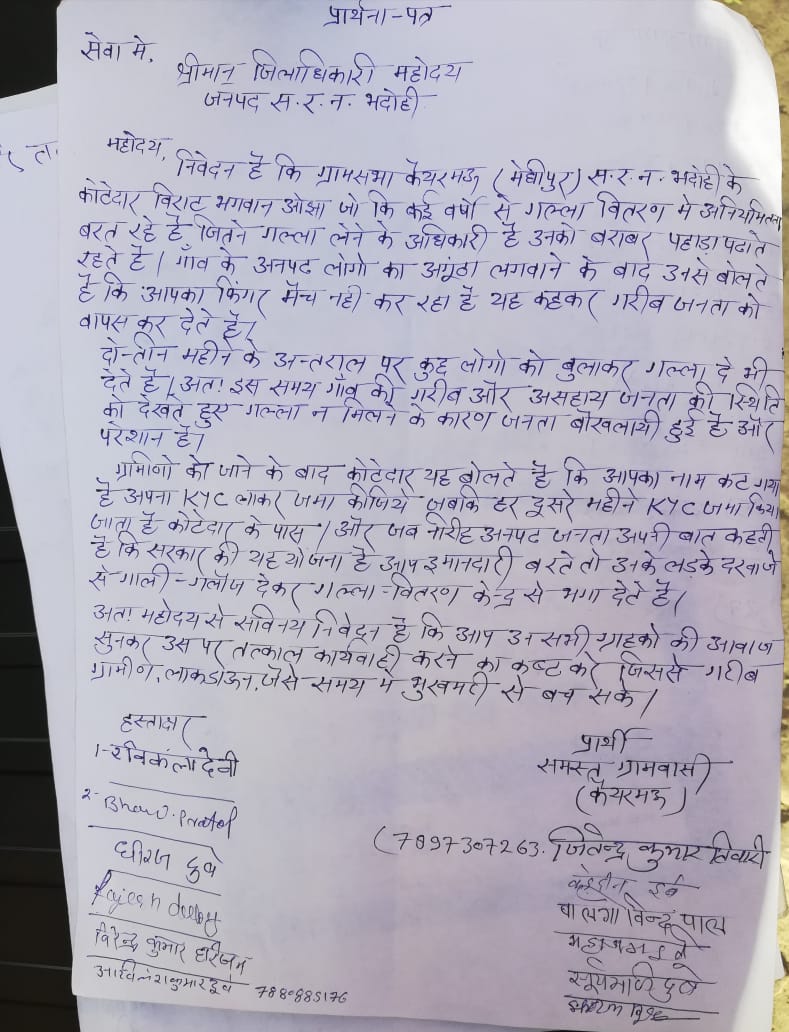 प्रार्थना-पत्र
सेवा मे,
श्रीमान् जिलाधिकारी महोदय
जनपद स.र.न. भदोही
महोदय,
निवेदन है कि ग्रामसभा केयरमऊ (मेघीपुर) स.र.न. भदोही के
कोटेदार विराट भगवान ओझा जो कि कई वर्षो से गल्ला वितरण मे अनियमितता
बरत रहे है जितने गल्ला लेने के अधिकारी है उनको बराबर पहाड़ा पढाते
रहते है। गाँव के अनपढ लोगो का अगूंठा लगवाने के बाद उनसे बोलते
है कि आपका फिंगर मैच नही कर रहा है यह कहकर गरीब जनता को
वापस कर देते है।
दो-तीन महीने के अन्तराल पर कुछ लोगो को बुलाकर गल्ला दे भी
देते है। अतः इस समय गाँव की गरीब और असहाय जनता की स्थिति
को देखते हुए गल्ला न मिलने के कारण जनता बौखलायी हुई है और
परेशान है।
ग्रामिणो के जाने के बाद कोटेदार यह बोलते है कि आपका नाम कट गया
है अपना KYC लाकर जमा कीजिये जबकि हर दूसरे महीने KYC जमा किया
जाता है कोटेदार के पास। और जब निरीह अनपढ जनता अपनी बात कहती
है कि सरकार की यह योजना है आप इमानदारी बरते तो उनके लड़के दरवाजे
से गाली-गलौज देकर गल्ला-वितरण केन्द्र से भगा देते है।
अतः महोदय से सविनय निवेदन है कि आप उन सभी ग्राहको की आवाज
सुनकर उस पर तत्काल कार्यवाही करने का कष्ट करे जिससे गरीब
ग्रामीण लाकडाऊन जैसे समय मे भुखमरी से बच सके।
हस्ताक्षर
1-रविकला देवी
2-
धीरज दुबे
Rajesh dubey
विरेन्द्र कुमार हरिजन
अखिलेश कुमार दुबे 7880885176
प्रार्थी
समस्त ग्रामवासी
(केयरमऊ)
(7897307263. जितेन्द्र कुमार तिवारी
दुबे
बालगोविन्द पाल
सूर्यमणि दुबे